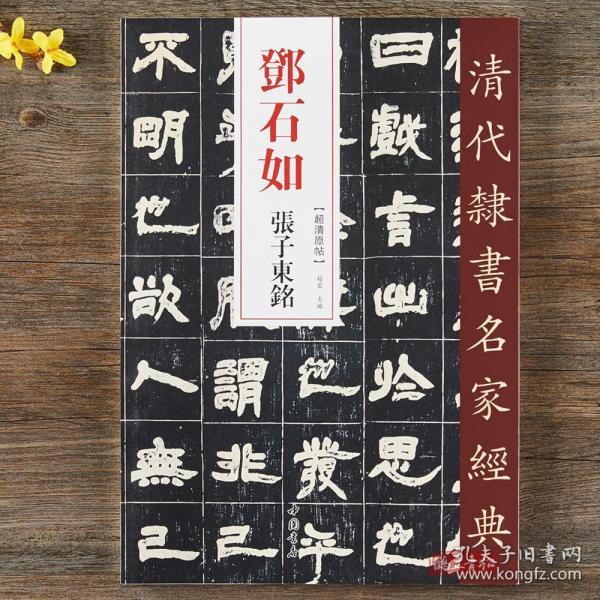 清代隸書名家經典
鄧石如
張子東銘
【超清原帖】
趙宏 主編
曰戲言出於思也
也發乎
謂非己
不明也欲人無己
中國書店
孔夫子旧书网
www.kongfz.com